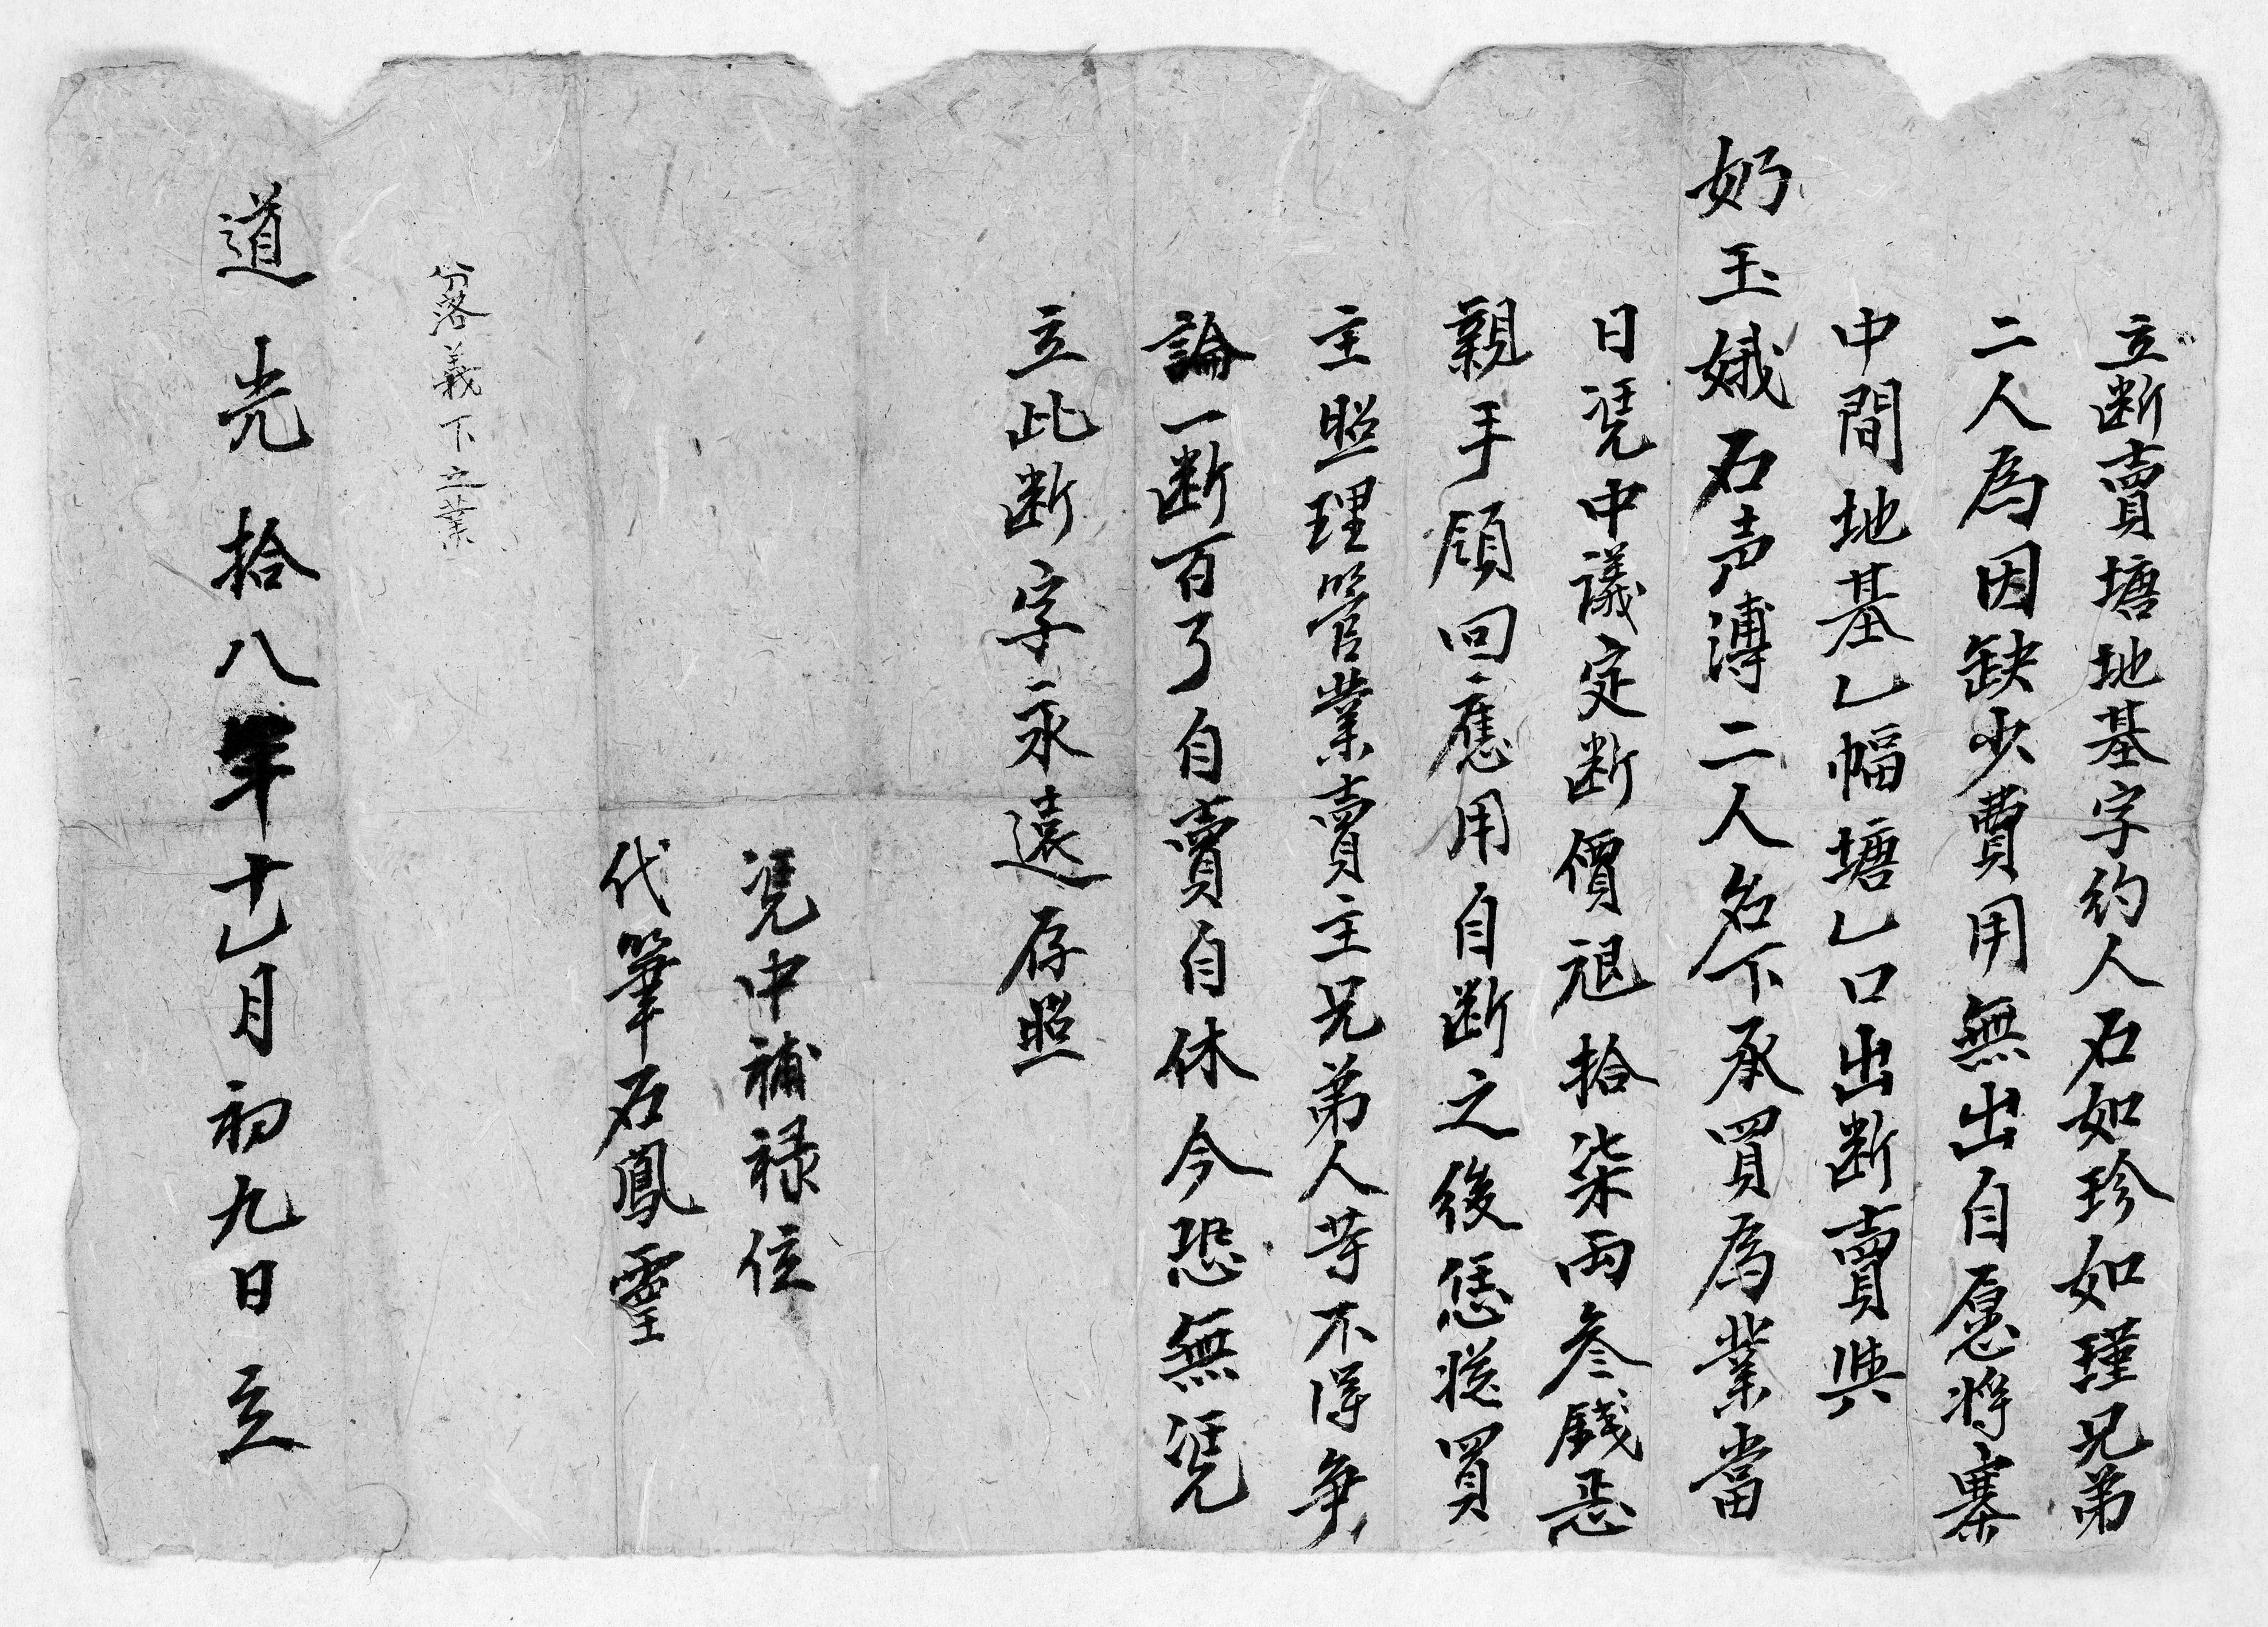 立断賣塘地基字約人石如珍如瑾兄弟
二人為因缺少費用無出自愿将寨
中間地基乚幅塘乚口出断賣與
奶玉娥石声溥二人名下承買為業當
日凴中議定断價 拾柒両叁錢
親手領回應用自断之後恁從買
主照理管業賣主兄弟人等不得争
論一断百了自賣自休今恐無凴
立此断字永遠存照
凴中補禄位
代筆石鳳靈
落義下之業
道光拾八年十乚月初九日立